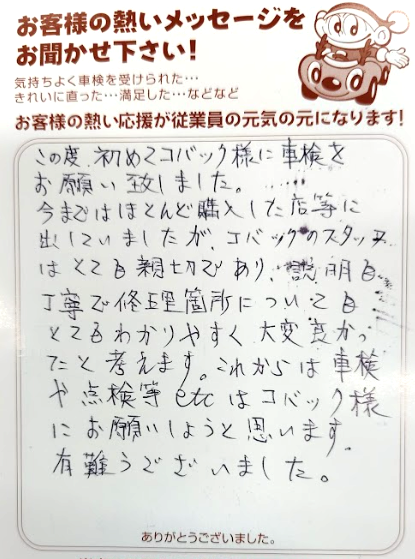 お客様の熱いメッセージを
お聞かせ下さい!
気持ちよく車検を受けられた…
きれいに直った…満足した…などなど
お客様の熱い応援が従業員の元気の元になります!
この度、初めてコバック様に車検を
お願い致しました。……
今まではほとんど購入した店等に
出していましたが、コバックのスタッフ
はとても親切であり、説明も
丁寧で修理箇所についても
とてもわかりやすく大変良かっ
たと考えます。これからは車検
や点検等etcはコバック様
にお願いしようと思います。
有難うございました。
ありがとうございました。